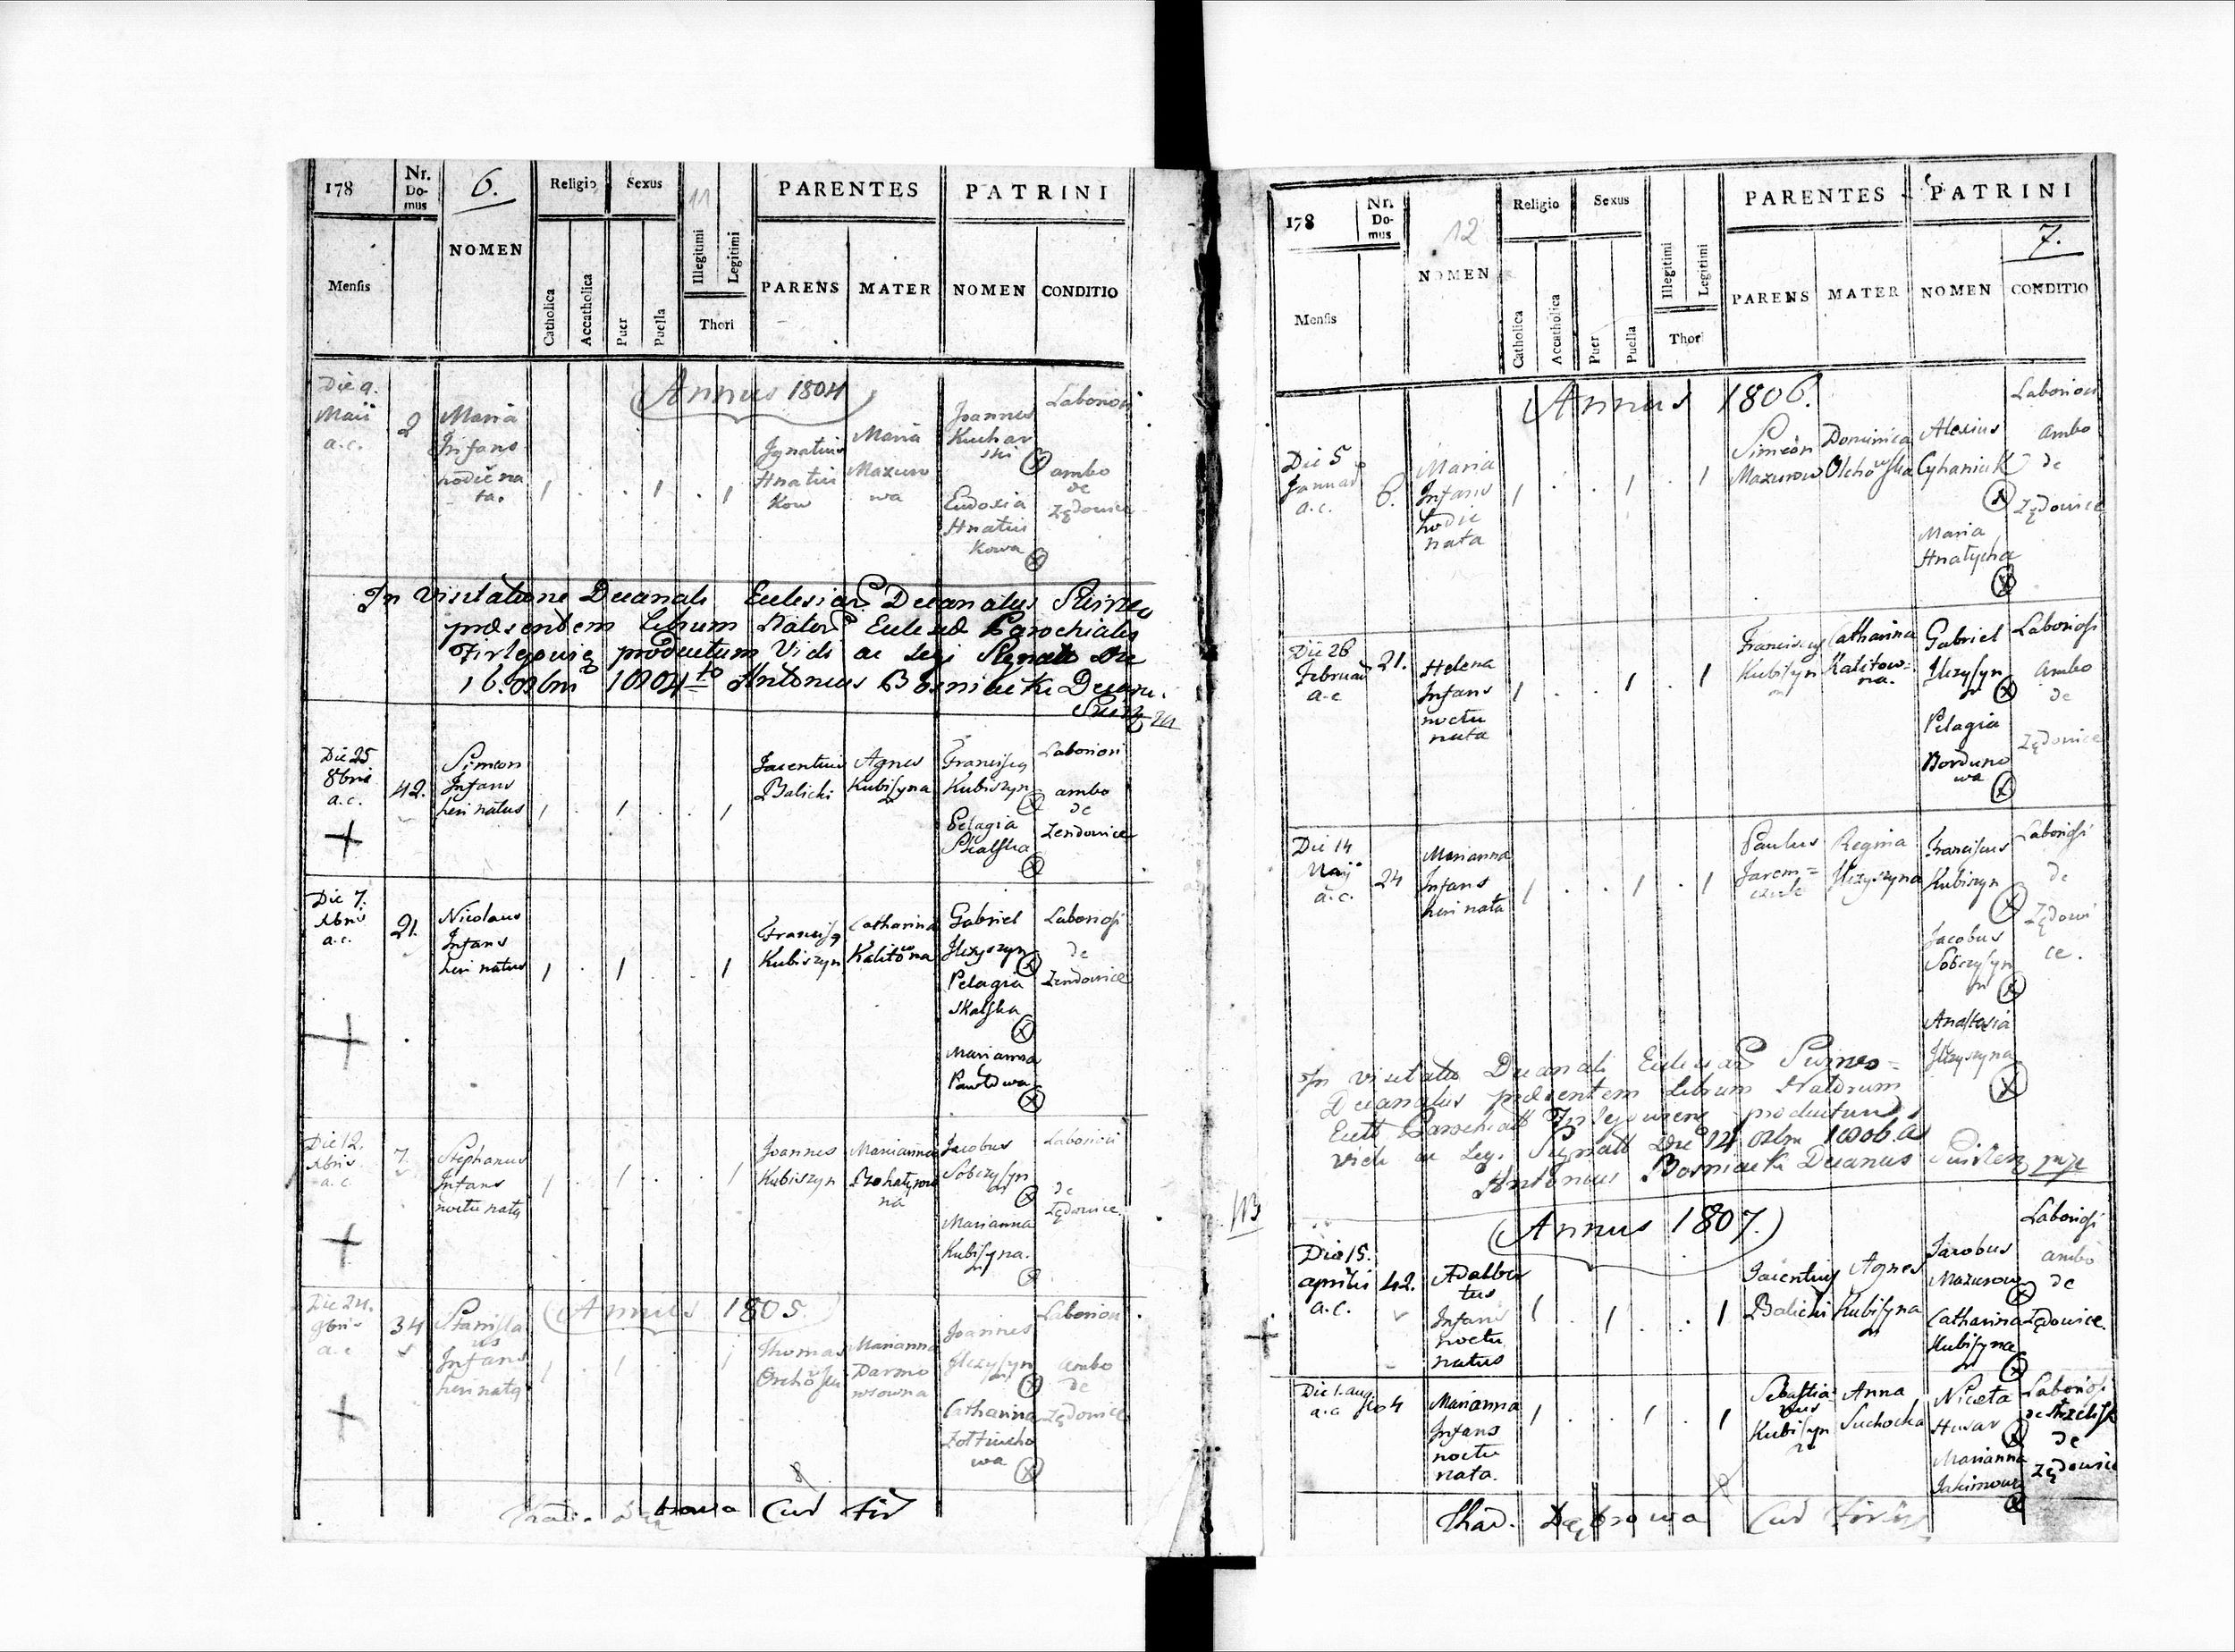 178
Nr. Do-mus
6.
Religio
Sexus
11
PARENTES
PATRINI
Mensis
NOMEN
Catholica
Accatholica
Puer
Puella
Illegitimi
Legitimi
Thori
PARENS
MATER
NOMEN
CONDITIO
Annus 1804
Die 9.
Maii
a.c.
2
Maria
Infans
hodie na
ta.
Ignatius
Hnatiu
kow
Maria
Mazuro
wa
Joannes
Kuchar
ski
Eudoxia
Hnatiu
kowa
Laboriosi
ambo
de
Zędowice
In visitatione Decanali Ecclesiar Decanatus
præsentem Librum Nator Ecclesiæ Parochialis
productum Vidi ac Legi Die
16 1804to Antonius Bosniacki Decan.
Die 25
8bris
a.c.
42.
Simeon
Infans
heri natus
Jacentius
Balicki
Agnes
Kubisyna
Francisq
Kubiszyn
Pelagia
Skalska
Laboriosi
ambo
de
Zendowice
Die 7.
Xbris
a.c.
21.
Nicolaus
Infans
heri natus
Francisq
Kubiszyn
Catharina
Kalitowna
Gabriel
Ilczyszyn
Pelagia
Skalska
Marianna
Pawłowa
Laboriosi
de
Zendowice
Die 12.
Xbris
a.c.
7
Stephanus
Infans
noctu natq
Joannes
Kubiszyn
Marianna
Bohatyrow
na
Jacobus
Sobczysyn
Marianna
Kubisyna.
Laboriosi
de
Zędowice
(Annus 1805.)
Die 24.
9bris
a.c
34
Stanisla
us
Infans
heri natq
Thomas
Marianna
Darmo
wrowna
Joannes
Ilczysyn
Catharina
Laboriosi
ambo
de
Zędowice
Thad. Dąbrowa Cur Fir
178
Nr. Do-mus
12
NOMEN
Religio
Sexus
PARENTES
PATRINI
7.
Mensis
Catholica
Accatholica
Puer
Puella
Illegitimi
Legitimi
Thori
PARENS
MATER
NOMEN
CONDITIO
Annus 1806.
Die 5
Januar
a.c.
6.
Maria
Infans
hodie
nata
Simeon
Mazurow
Dominica
Olchowska
Alexius
Cyhaniuk
Maria
Hnatycha
Laboriosi
ambo
de
Zędowice
Die 26
Februar
a.c
21.
Helena
Infans
noctu
nata
Franciscq
Kubisyn
Catharina
Kalitow=
na.
Gabriel
Ilczysyn
Pelagia
Borduno
wa
Laboriosi
ambo
de
Zędowice
Die 14
Maj
a.c.
24
Marianna
Infans
heri nata
Paulus
Jarem=
czuk
Regina
Ilczyszyna
Franciscus
Kubiszyn
Jacobus
Sobczysyn
Anastasia
Ilczyszyna
Laboriosi
de
Zędowi
ce.
In visitatio Decanali Ecclesiar
Decanatus præsentem Librum Natorum
Eccle Parochial productum
Vidi ac Legi Die 14 1806
Antonius Bosniacki Decanus
113
(Annus 1807.)
Die 15.
aprilis
a.c.
42.
Adalber
tus
Infans
noctu
natus
Jacentius
Balicki
Agnes
Kubisyna
Jacobus
Mazurow
Catharina
Kubisyna
Laboriosi
ambo
de
Zędowice.
Die 1. aug
a.c
4
Marianna
Infans
noctu
nata.
Sebastia-
nus
Kubisyn
Anna
Suchocka
Niceta
Husar
Marianna
Jakimowa
Laboriosi
de
Zędowice
Thad. Dąbrowa Cur